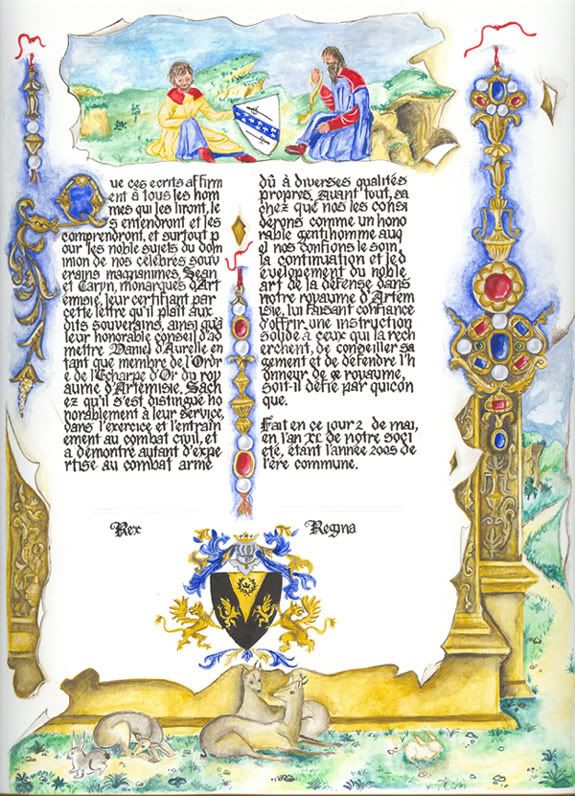 Que ces ecrits affirm
ent à tous les hom
mes qui les liront, le
s entendront et les
comprendront, et surtout p
our les noble sujets du dom
inion de nos célèbres souv
erains magnanimes, Sean
et Caryn, monarques d'Art
émisie, leur certifiant par
cette lettre qu'il plaît aux
dits souverains, ainsi qu'à
leur honorable conseil d'ad
mettre Daniel d'Aurelle en
tant que membre de l'Ordr
e de l'Echarpe d'Or du roy
aume d'Artémisie, Sach
ez qu'il s'est distingué ho
norablement à leur service,
dans l'exercice et l'entraîn
ement au combat civil, et
a démontré autant d'expe
rtise au combat armé
dû à diverses qualités
propres. Avant tout, sa
chez que nos les consi
derons comme un hono
rable gentilhomme auq
el nos confions le soin,
la continuation et le d
evelopement du noble
art de la défense dans
notre royaume d'Artém
isie, lui faisant confiance
d'offrir une instruction
solide à ceux qui la rech
erchent, de conseiller sa
gement et de défendre l'h
onneur de ce royaume,
soit-il défié par quicon
que.
Fait en ce jour 2 de mai,
en l'an XL de notre soci
été, étant l'année 2005 de
l'ère commune.
Rex
Regina